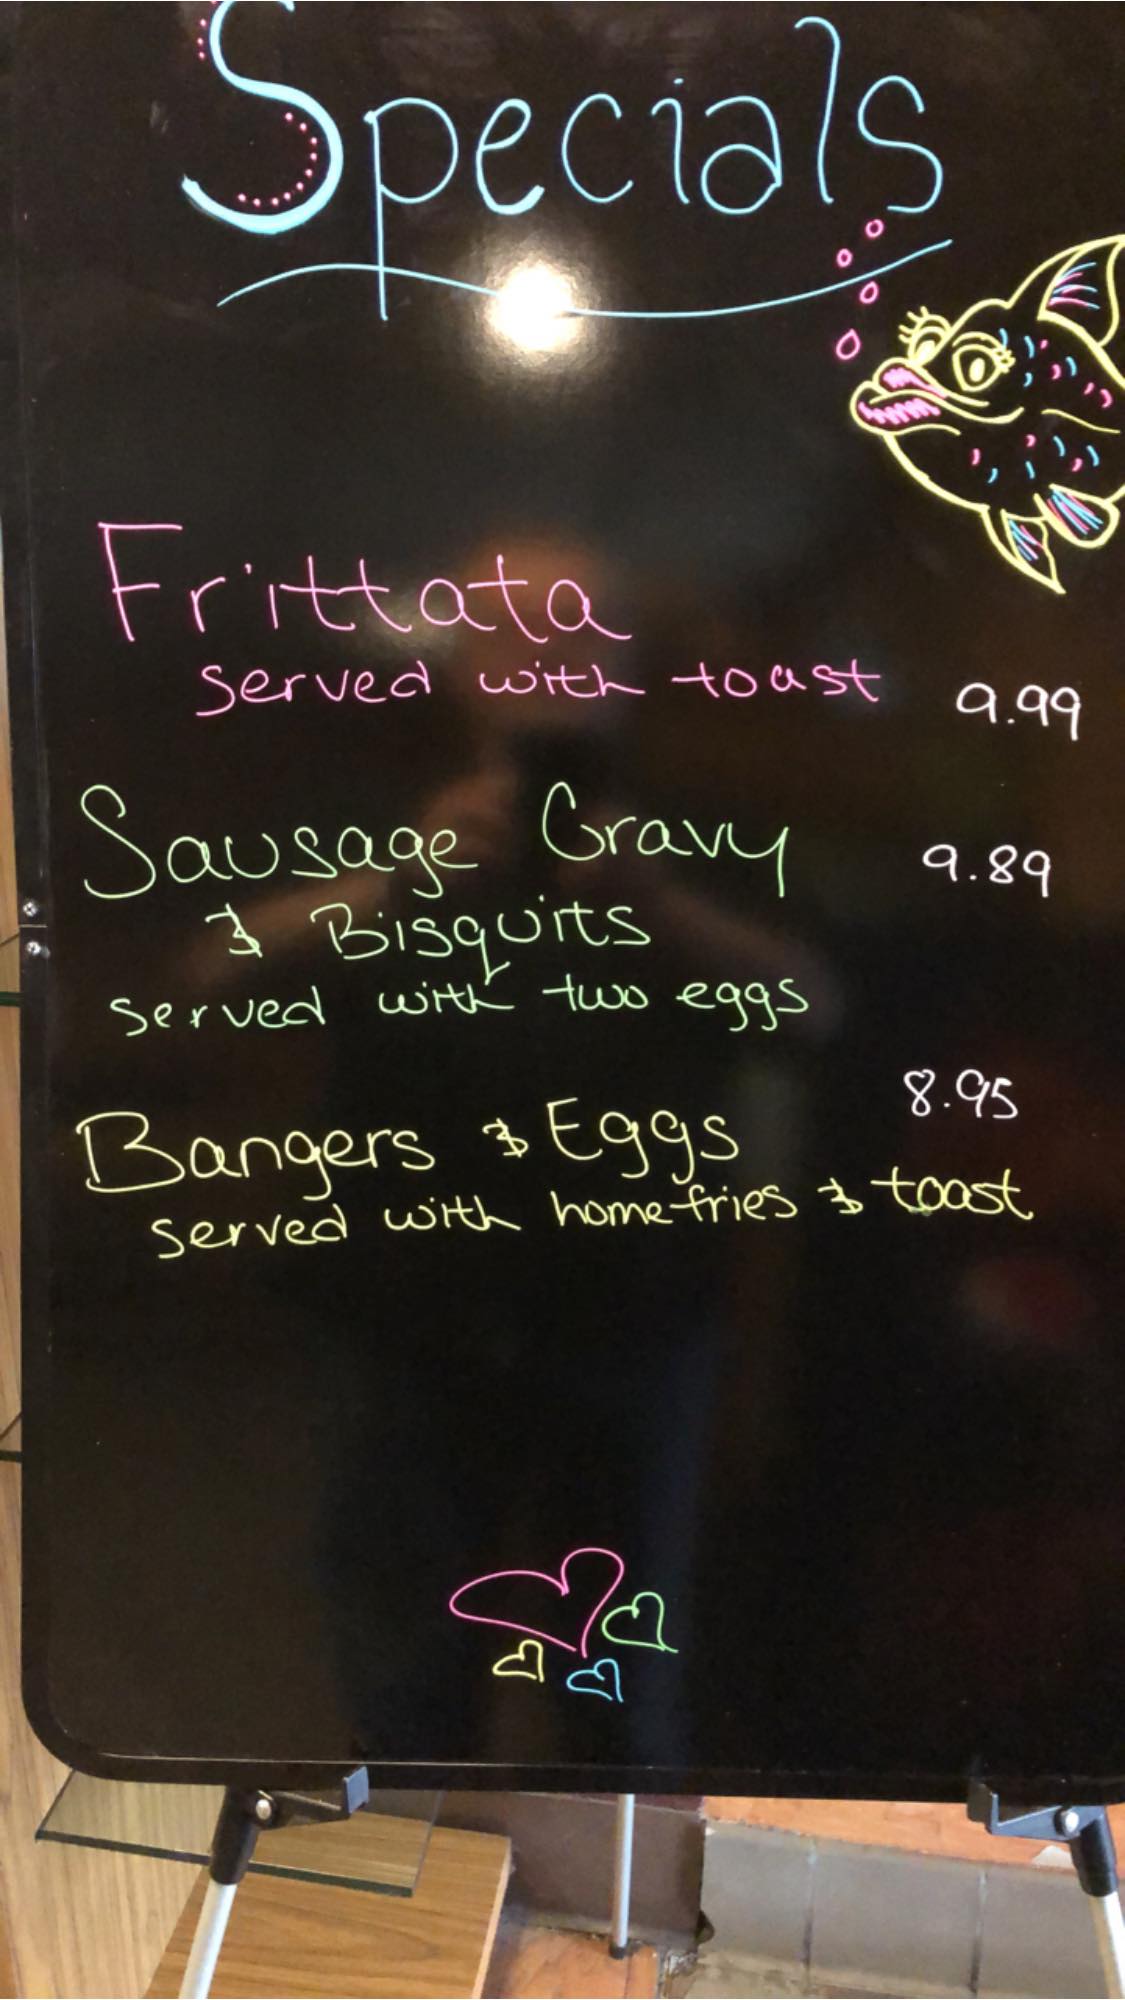 Specials
Frittata
served with toast 9.99
Sausage Gravy 9.89
& Bisquits
served with two eggs
8.95
Bangers & Eggs
served with homefries & toast